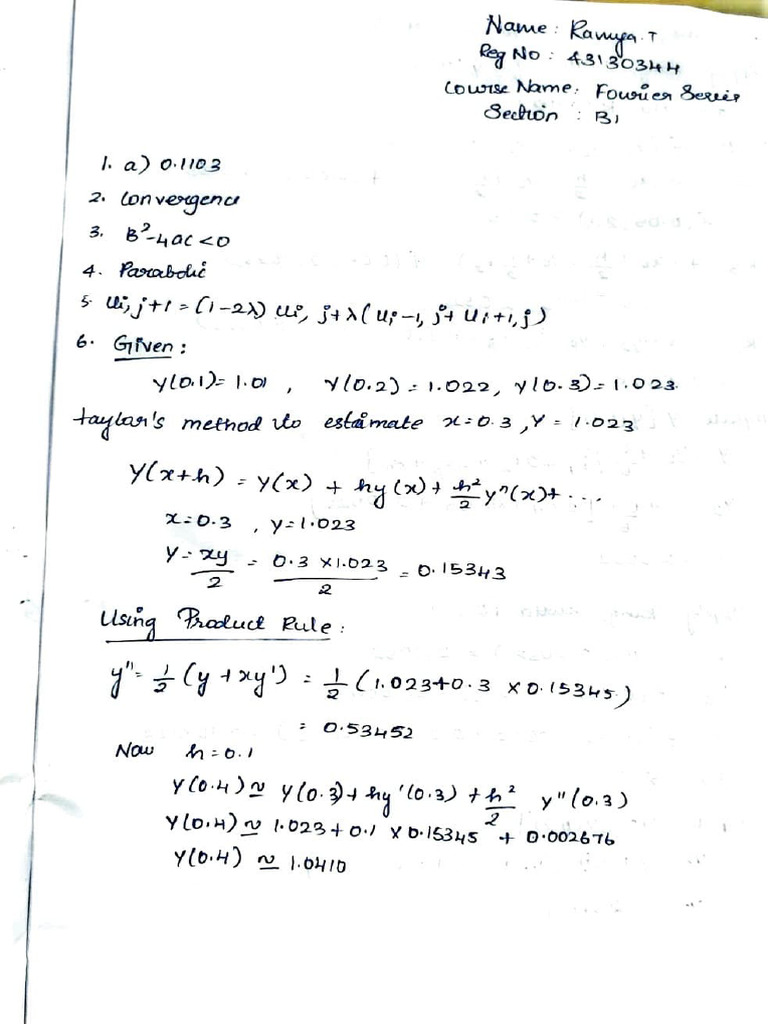 Name : Ramya.T
Reg No : 43130344
Course Name: Fourier Series
Section : B1
1. a) 0.1103
2. Convergence
3. B²-4ac<0
4. Parabolic
5. ui,j+1 = (1-2λ) ui, j+λ(ui-1, j+ ui+1,j)
6. Given :
y(0.1)= 1.01 , y(0.2) = 1.022, y(0.3)= 1.023.
taylor's method to estimate x=0.3 ,y = 1.023
y(x+h) = y(x) + hy(x)+ h²/2 y"(x)+ ...
x=0.3 , y=1.023
y = xy/2 = 0.3 x1.023/2 = 0.15343
Using Product Rule :
y"= 1/2 (y +xy') = 1/2 (1.023+0.3 x0.15345)
= 0.53452
Now h=0.1
y(0.4) ≃ y(0.3)+ hy'(0.3) + h²/2 y"(0.3)
y(0.4) ≃ 1.023+0.1 x0.15345 + 0.002676
y(0.4) ≃ 1.0410